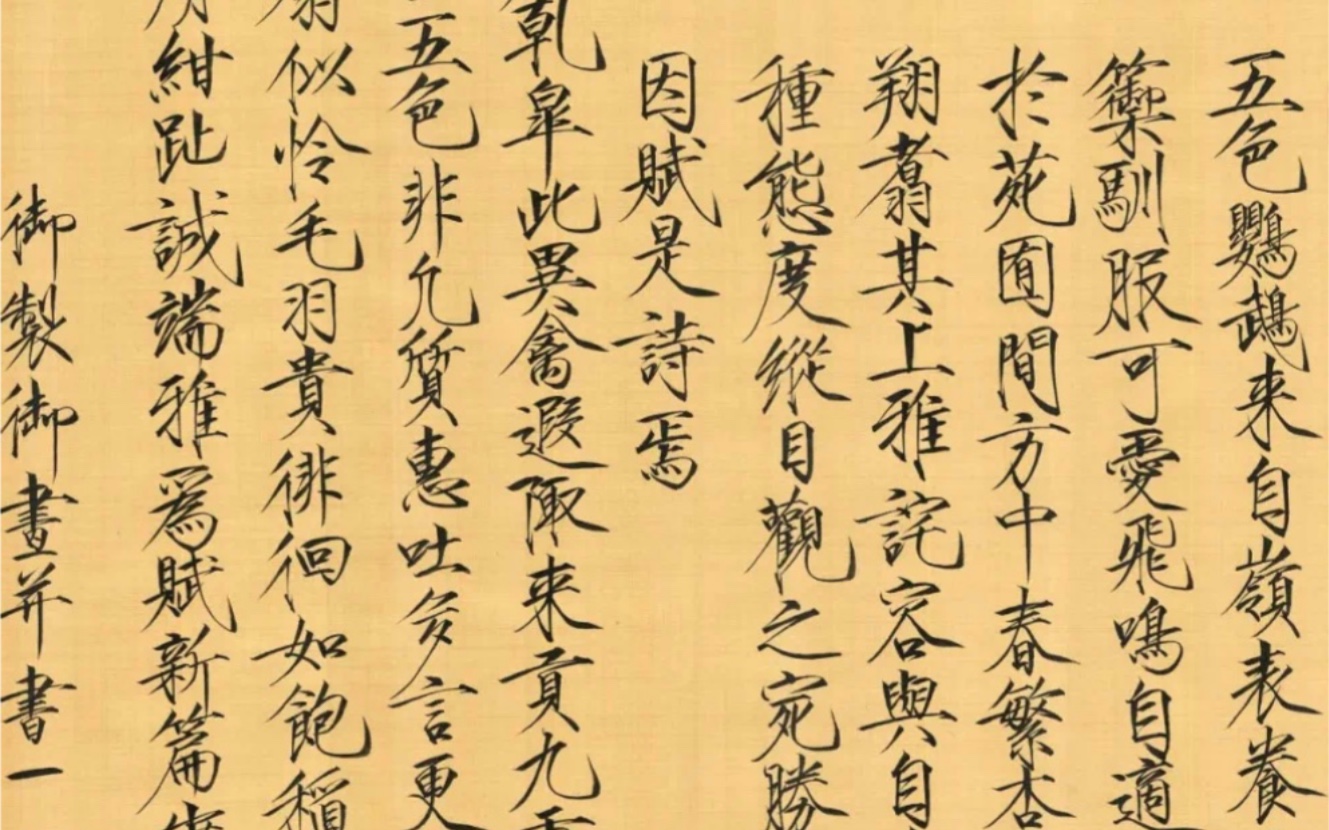 五色鸚鵡来自嶺表養
籞馴服可愛飛鳴自適
於苑囿間方中春繁杏
翔翥其上雅詫容與自
種態度縱目觀之宛勝
因賦是詩焉
乾皋此異禽遐陬来貢九
五色非凡質惠吐多言更
似怜毛羽貴徘徊如飽稻
紺趾誠端雅爲賦新篇
御製御畫并書一